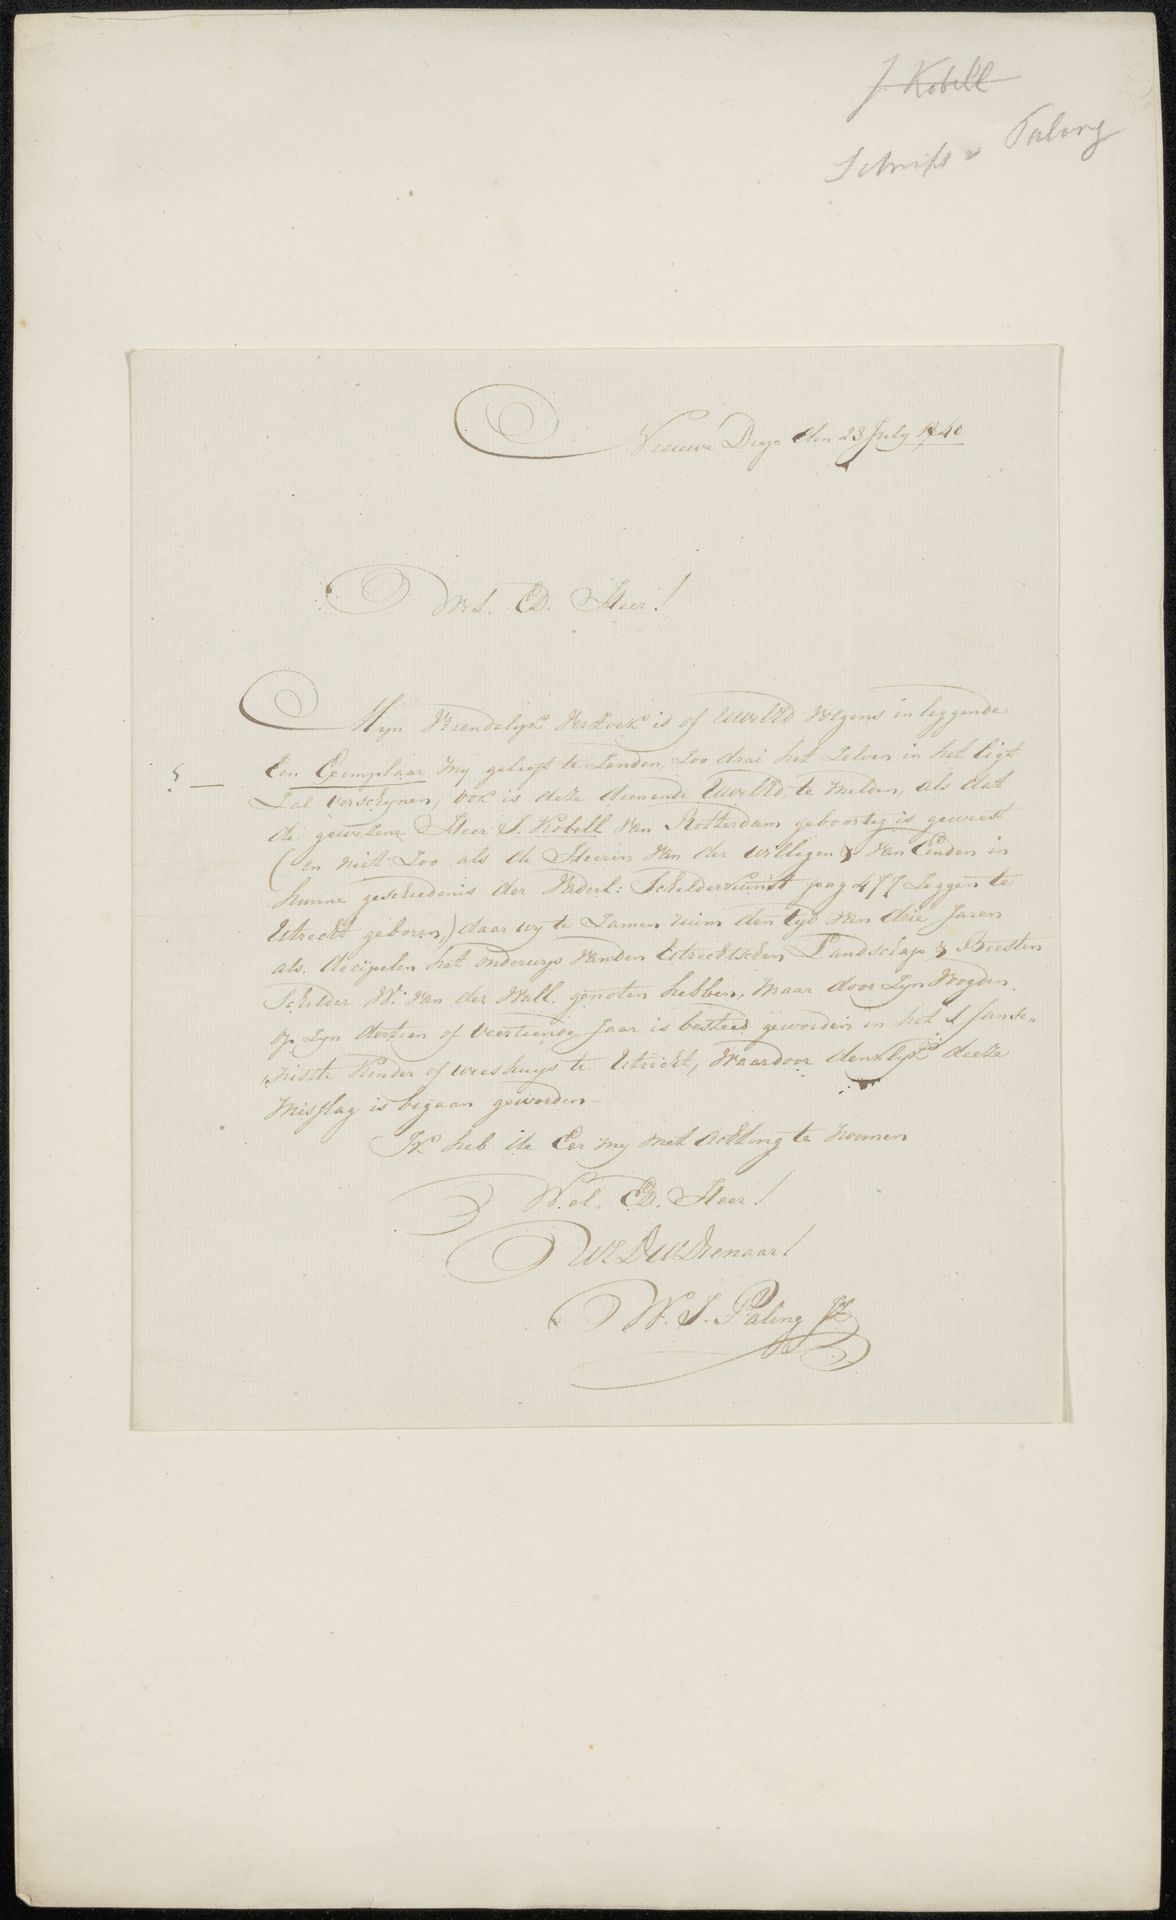 J. Kobell
Paling
Nieuwe Diep den 23 July 1840
Wel. Ed. Heer!
Myn Vriendelyk Verzoek is of UwelEd volgens inleggende
Een Exemplaar my gelieft te Zenden, Zoo drai het Zelven in het ligt
Zal verschynen, ook is deze dienende UwelEd. te melden, als dat
de gewezene Heer J. Kobell van Rotterdam geboortig is geweest
(en niet Zoo als de Heeren van der Willigen & van Einden in
hunne geschiedenis der Vaderl: Schilderkunst pag 477 Zeggen te
Utrecht geboren,) daar wy te Zamen ruim den tyd van drie Jaren
als. decipelen het onderwys vanden Utrechtschen Landschap & Beesten
Schilder W. van der Wall, genoten hebben, maar door Zyn Vogden
op Zyn dertien of veertiende Jaar is besteed geworden in het Janse„
„niste Kinder of weeshuys te Utrecht, Waardoor denklyk deeze
misslag is begaan geworden –
Ik heb de Eer my met achting te noemen
Wel. Ed. Heer!
UEDWDienaar!
W. J. Paling JZ